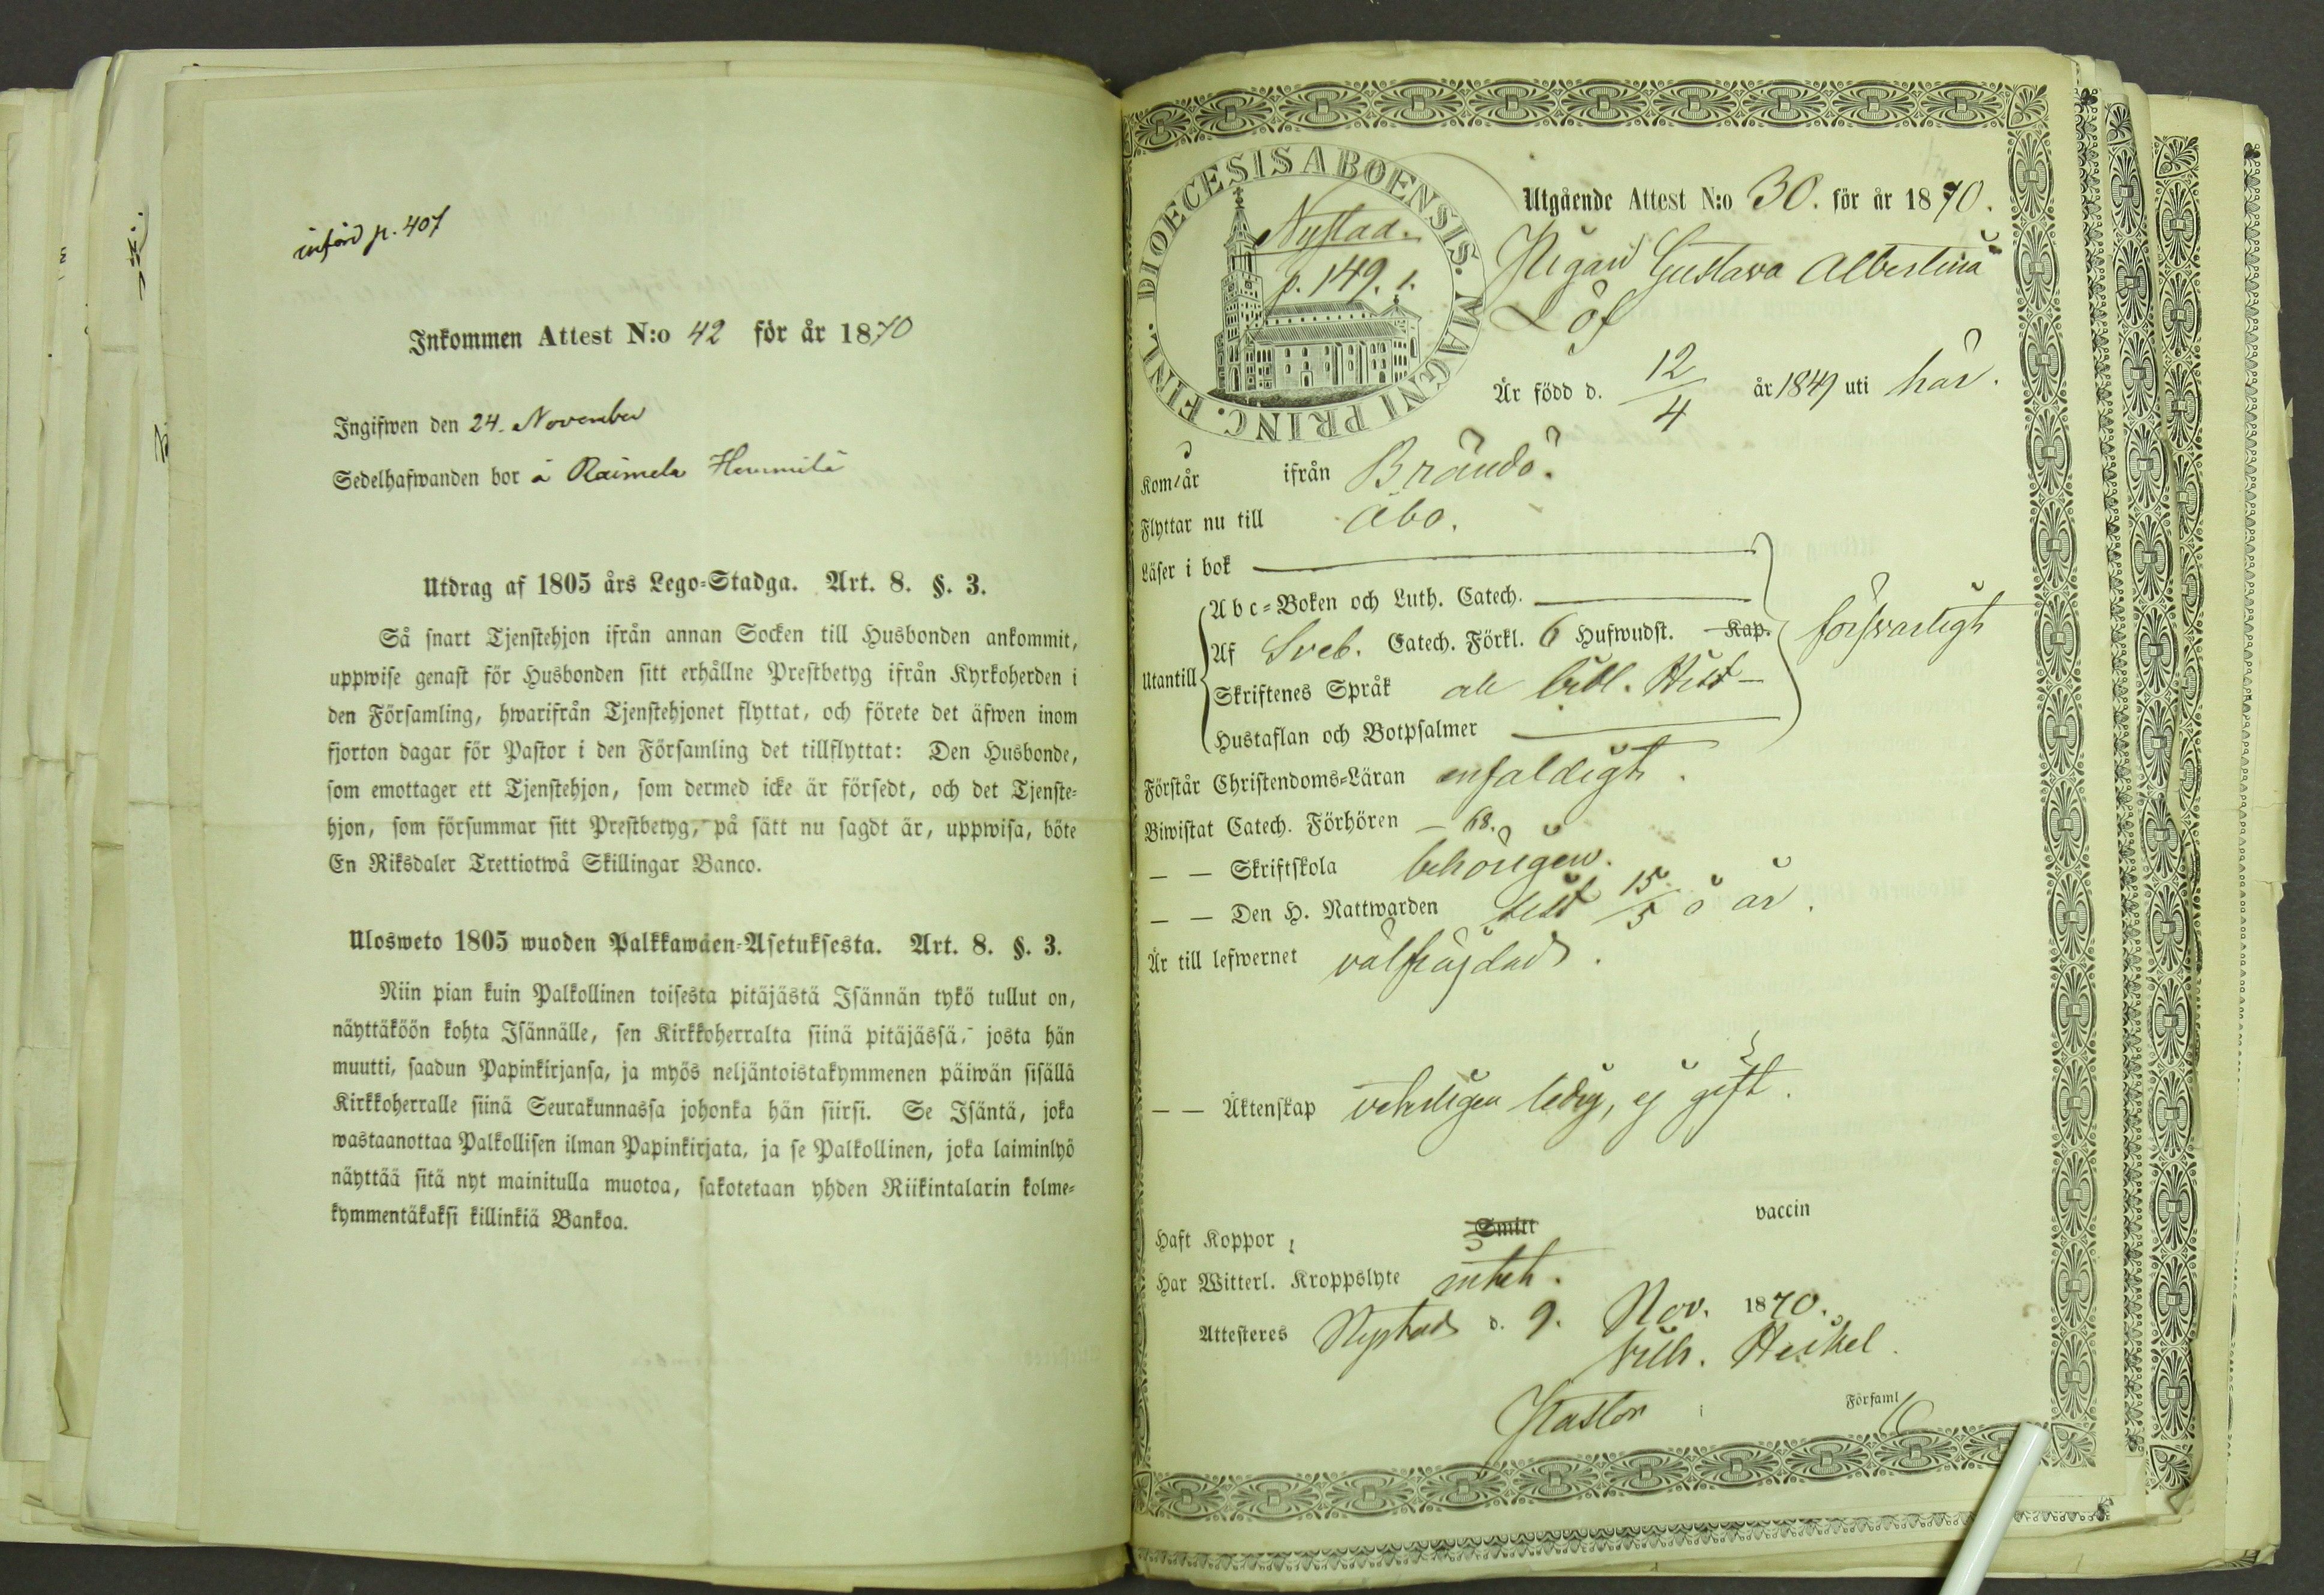 införd p. 407
Inkommen Attest N:o 42 för år 1870
Ingifwen den 24. November
Sedelhafwanden bor å Raimela Hemmilä
Utdrag af 1805 års Lego-Stadga. Art. 8. §. 3.
Så snart Tjenstehjon ifrån annan Socken till Husbonden ankommit,
uppwise genast för Husbonden sitt erhållne Prestbetyg ifrån Kyrkoherden i
den Församling, hwarifrån Tjenstehjonet flyttat, och förete det äfwen inom
fjorton dagar för Pastor i den Församling det tillflyttat: Den Husbonde,
som emottager ett Tjenstehjon, som dermed icke är försedt, och det Tjenste-
hjon, som försummar sitt Prestbetyg, på sätt nu sagdt är, uppwisa, böte
En Riksdaler Trettiotwå Skillingar Banco.
Ulosweto 1805 wuoden Palkkawäen-Asetuksesta. Art. 8. §. 3.
Niin pian kuin Palkollinen toisesta pitäjästä Isännän tykö tullut on,
näyttäköön kohta Isännälle, sen Kirkkoherralta siinä pitäjässä, josta hän
muutti, saadun Papinkirjansa, ja myös neljäntoistakymmenen päiwän sisällä
Kirkkoherralle siinä Seurakunnassa johonka hän siirsi. Se Isäntä, joka
wastaanottaa Palkollisen ilman Papinkirjata, ja se Palkollinen, joka laiminlyö
näyttää sitä nyt mainitulla muotoa, sakotetaan yhden Riikintalarin kolme-
kymmentäkaksi killinkiä Bankoa.
DIOECESIS ABOENSIS. MAGNI PRINC. FINL.
Nystad.
p. 149. 1.
Utgående Attest N:o 30. för år 1870.
Pigan Gustava Albertina
Löf
Är född d. 12/4 år 1849 uti här.
Kom år ifrån Brändö.
Flyttar nu till Åbo.
Läser i bok
Utantill
Abc-Boken och Luth. Catech.
Af Sveb. Catech. Förkl. 6 Hufwudst. Kap. försvarligt
Skriftenes Språk bibl. Hist
Hustaflan och Botpsalmer
Förstår Christendoms-Läran enfaldigt.
Biwistat Catech. Förhören - 68.
— — Skriftskola behörigen.
— — Den H. Nattwarden sist 15/5 i år.
Är till lefwernet välfräjdad.
— — Äktenskap veterligen ledig, ej gift.
Haft Koppor, Smitt vaccin
Har Witterl. Kroppslyte intet.
Attesteres Nystad d. 9. Nov. 1870.
Vilh. Heikel
Pastor i Församl